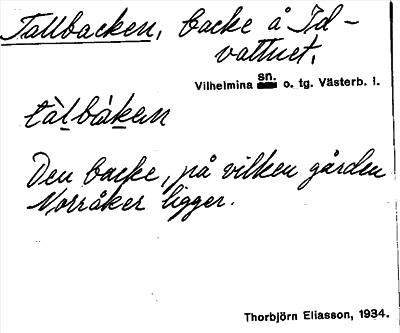 Tallbacken, backe å Id-
vattnet.
Vilhelmina sn. o. tg. Västerb. l.
tàlbákan
Den backe, på vilken gården
Norråker ligger.
Thorbjörn Eliasson, 1934.